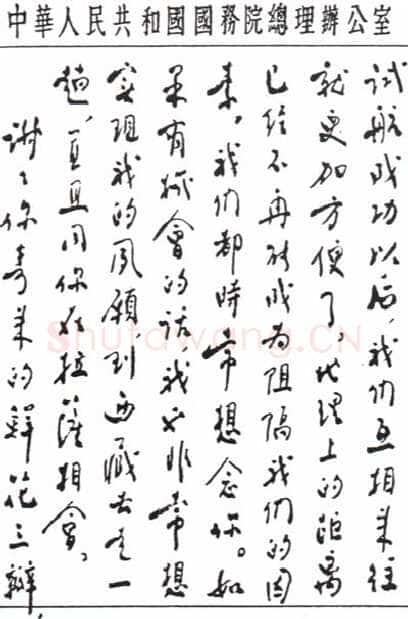 中華人民共和國國務院總理辦公室
试航成功以后，我们互相来往
就更加方便了，地理上的距离
已经不再能成为阻隔我们的因
素。我们都时常想念你。如
果有机會的话，我也非常想
实现我的夙願到西藏去走一
趟，並且同你在拉薩相會。
谢々你寄来的鲜花三瓣，
Shufawang.CN